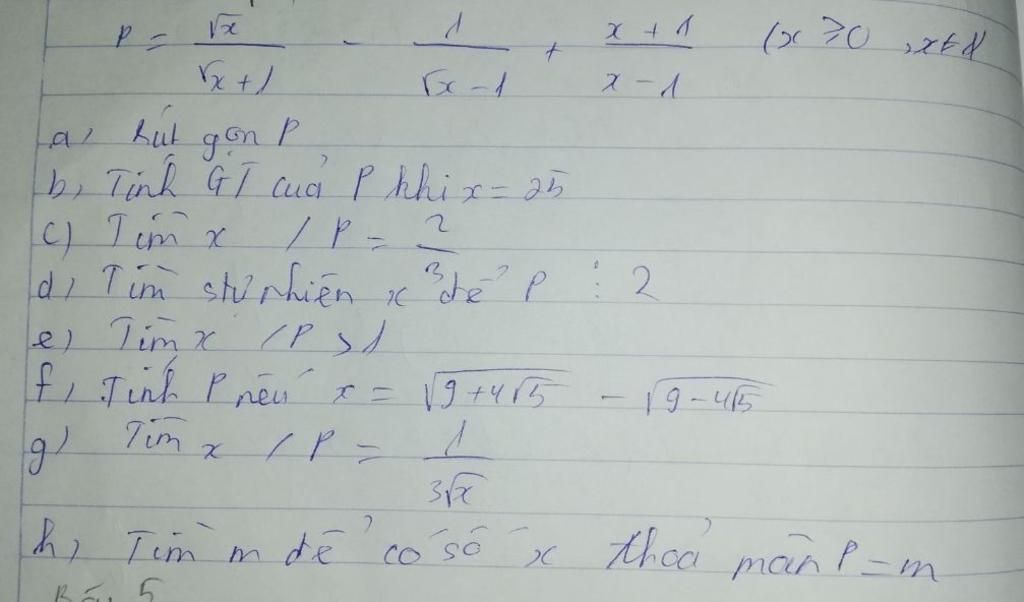 P = √x/(√x + 1) - 1/(√x - 1) + (x + 1)/(x - 1) (x ≥ 0, x ≠ 1)
a, Rút gọn P
b, Tính GT của P khi x = 25
c) Tìm x / P = 2/3
d, Tìm số tự nhiên x để P ⋮ 2
e) Tìm x / P > 1
f, Tính P nếu x = √(9 + 4√5) - √(9 - 4√5)
g) Tìm x / P = 1/(3√x)
h, Tìm m để có số x thoả mãn P = m
Bài 5